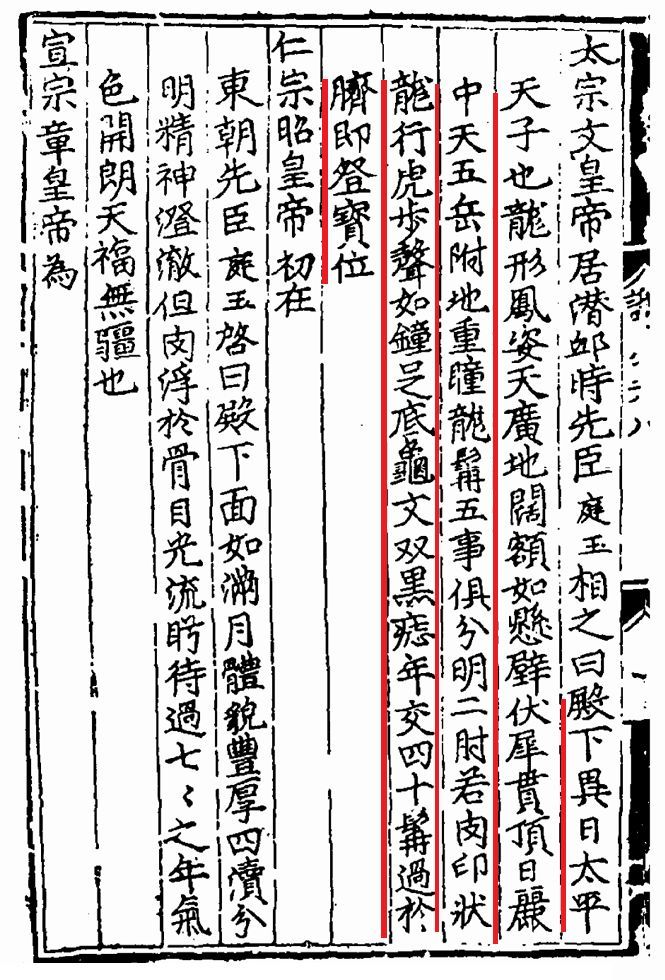 太宗文皇帝居潜邸時先臣庭玉相之曰殿下異日太平
天子也龍形鳳姿天廣地闊額如懸壁伏犀貫頂日麗
中天五岳附地重瞳龍髯五事俱分明二肘若肉印状
龍行虎步聲如鐘足底龜文双黑痣年交四十髯過於
臍即登寳位
仁宗昭皇帝初在
東朝先臣庭玉啓曰殿下面如滿月體貌豐厚四瀆分
明精神澄澈但肉浮於骨目光流眄待過七〻之年氣
色開朗天福無疆也
宣宗章皇帝為